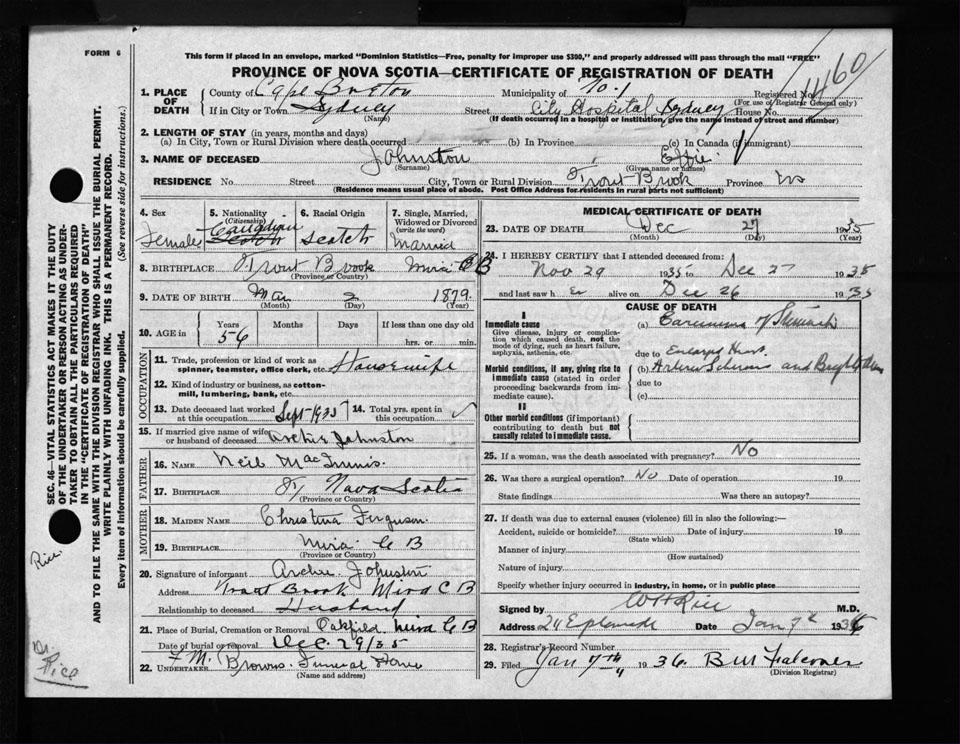 FORM 6
This form if placed in an envelope, marked "Dominion Statistics—Free, penalty for improper use $300," and properly addressed will pass through the mail "FREE"
PROVINCE OF NOVA SCOTIA—CERTIFICATE OF REGISTRATION OF DEATH
460
1. PLACE OF DEATH County of Cape Breton Municipality of No. 1 Registered No.
(For use of Registrar General only)
If in City or Town Sydney Street City Hospital Sydney House No.
(Name) (If death occurred in a hospital or institution, give the name instead of street and number)
2. LENGTH OF STAY (in years, months and days)
(a) In City, Town or Rural Division where death occurred (b) In Province (c) In Canada (if immigrant)
3. NAME OF DECEASED Johnston Effie
(Surname) (Given name or names)
RESIDENCE No. Street City, Town or Rural Division Trout Brook Province NS
(Residence means usual place of abode. Post Office Address for residents in rural parts not sufficient)
4. Sex 5. Nationality (Citizenship) 6. Racial Origin 7. Single, Married, Widowed or Divorced (write the word)
Female Canadian Scotch Scotch Married
8. BIRTHPLACE Trout Brook Mira C B
(Province or Country)
9. DATE OF BIRTH Mar 2 1879
(Month) (Day) (Year)
10. AGE in Years Months Days If less than one day old
56 hrs. or min.
OCCUPATION
11. Trade, profession or kind of work as spinner, teamster, office clerk, etc. Housewife
12. Kind of industry or business, as cotton-mill, lumbering, bank, etc.
13. Date deceased last worked at this occupation Sept 1935 14. Total yrs. spent in this occupation
15. If married give name of wife or husband of deceased Archie Johnston
FATHER
16. NAME Neil MacInnis
17. BIRTHPLACE Nova Scotia
(Province or Country)
MOTHER
18. MAIDEN NAME Christina Ferguson
19. BIRTHPLACE Mira C B
(Province or Country)
20. Signature of informant Archie Johnston
Address Trout Brook Mira C B
Relationship to deceased Husband
21. Place of Burial, Cremation or Removal Oakfield Mira C B
Date of burial or removal Dec 29/35
22. UNDERTAKER F. M. Browns Funeral Home
(Name and address)
MEDICAL CERTIFICATE OF DEATH
23. DATE OF DEATH Dec 27 1935
(Month) (Day) (Year)
24. I HEREBY CERTIFY that I attended deceased from:
Nov 29 1935 to Dec 27 1935
and last saw h er alive on Dec 26 1935
CAUSE OF DEATH
I
Immediate cause (a) Carcinoma of Stomach
Give disease, injury or complication which caused death, not the mode of dying, such as heart failure, asphyxia, asthenia, etc.
due to Enlarged Heart
Morbid conditions, if any, giving rise to immediate cause (stated in order proceeding backwards from immediate cause).
(b) Arterio Sclerosis and Brights
due to
(c)
II
Other morbid conditions (if important) contributing to death but not causally related to immediate cause.
25. If a woman, was the death associated with pregnancy? No
26. Was there a surgical operation? No Date of operation 19
State findings Was there an autopsy?
27. If death was due to external causes (violence) fill in also the following:—
Accident, suicide or homicide? Date of injury 19
(State which)
Manner of injury
(How sustained)
Nature of injury
Specify whether injury occurred in industry, in home, or in public place
Signed by W H Rice M.D.
Address 24 Esplanade Date Jan 7 1936
28. Registrar's Record Number
29. Filed Jan 7th 1936 B M Falconer
(Division Registrar)
SEC. 46—VITAL STATISTICS ACT MAKES IT THE DUTY
OF THE UNDERTAKER OR PERSON ACTING AS UNDER-
TAKER TO OBTAIN ALL THE PARTICULARS REQUIRED
IN THE "CERTIFICATE OF REGISTRATION OF DEATH"
AND TO FILE THE SAME WITH THE DIVISION REGISTRAR WHO SHALL ISSUE THE BURIAL PERMIT.
WRITE PLAINLY WITH UNFADING INK. THIS IS A PERMANENT RECORD.
Every item of information should be carefully supplied. (See reverse side for instructions.)
Rice
Dr. Rice